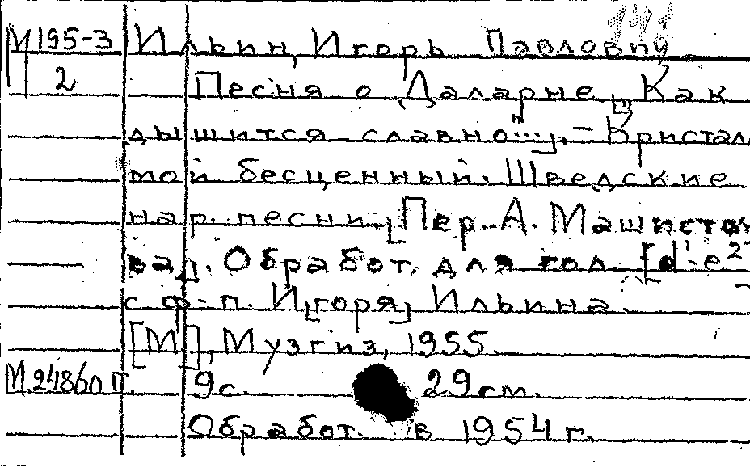 М195-3 Ильин, Игорь Павлович
2 Песня о Даларне ["Как
дышится славно..."]. - Кристалл
мой бесценный. Шведские
нар. песни. [Пер. А. Машистова
Обработ. для гол. [d¹-e²]
с ф-п. И[горя] Ильина.
[М], Музгиз, 1955.
М 24860 П 9с. 29см.
Обработ. в 1954 г.